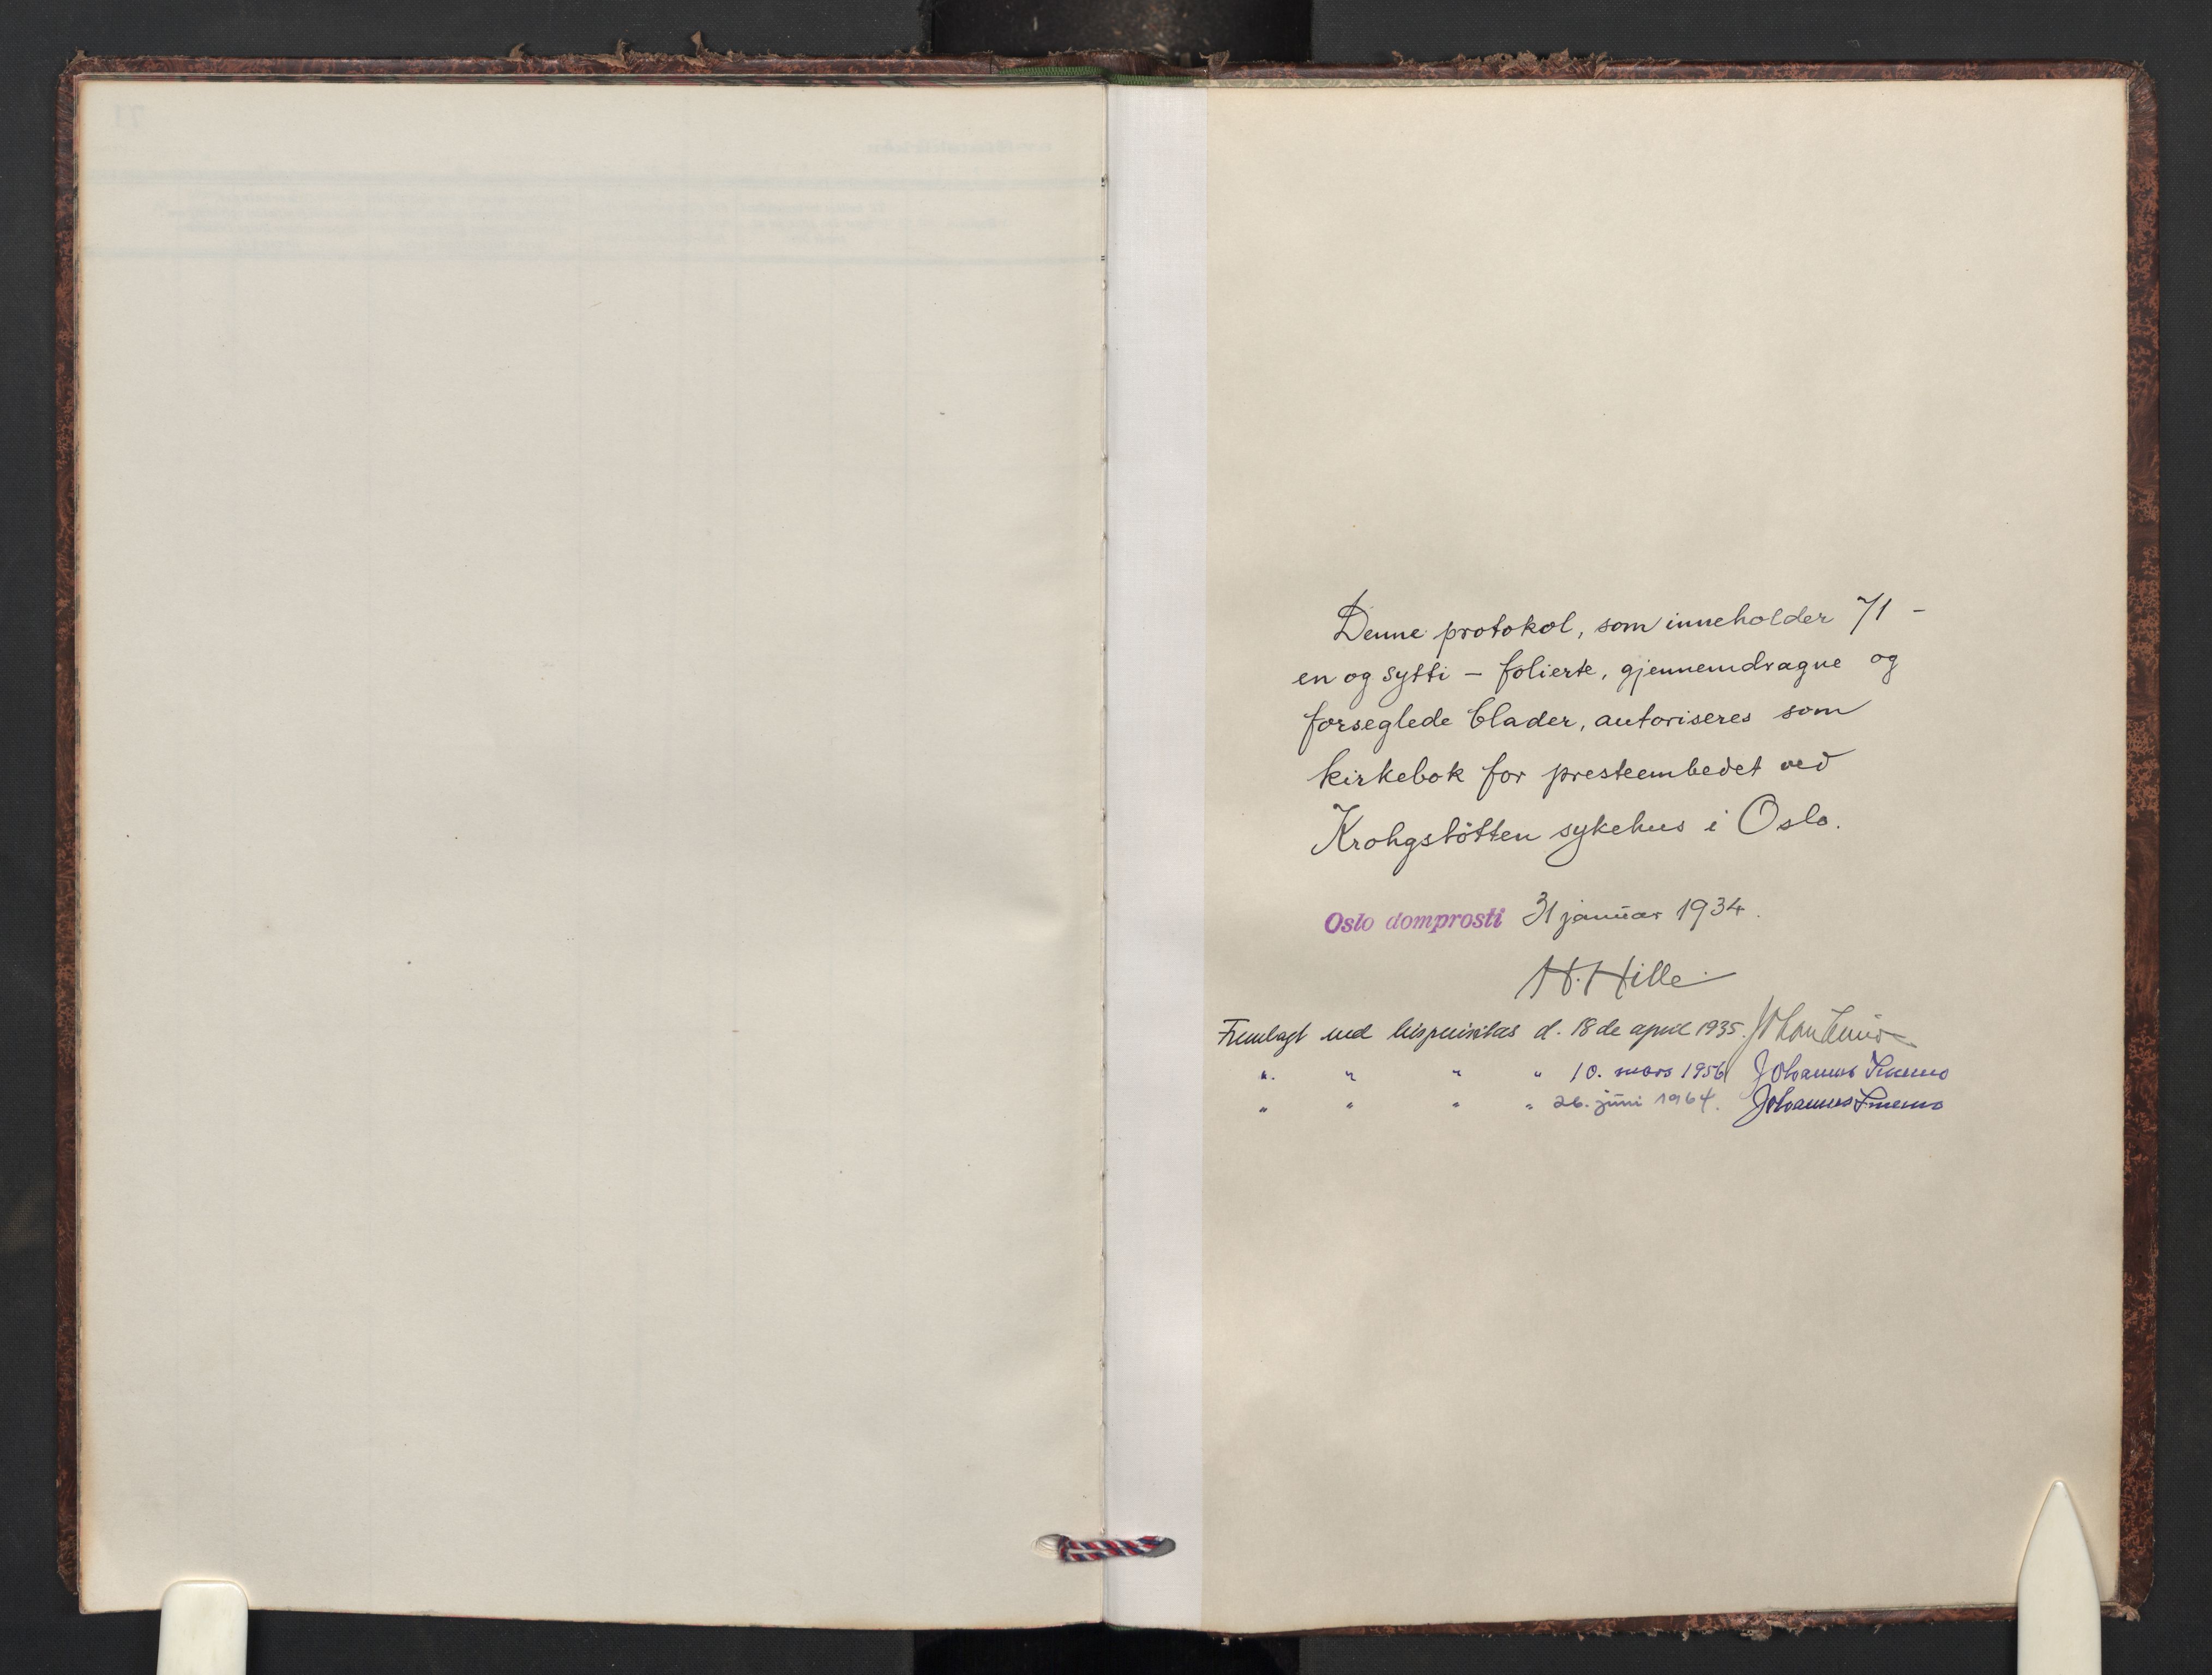 Denne protokol, som inneholder 71 -
en og sytti - folierte, gjennemdragne og
forseglede blader, autoriseres som
kirkebok for presteembedet ved
Krohgstötten sykehus i Oslo.
Oslo domprosti 31 januar 1934.
H. Hille
Fremlagt ved bispevisitas d. 18de april 1935. Johan Lunde
" " " " 10. mars 1956 Johannes Smemo
" " " " 26. juni 1964. Johannes Smemo
71